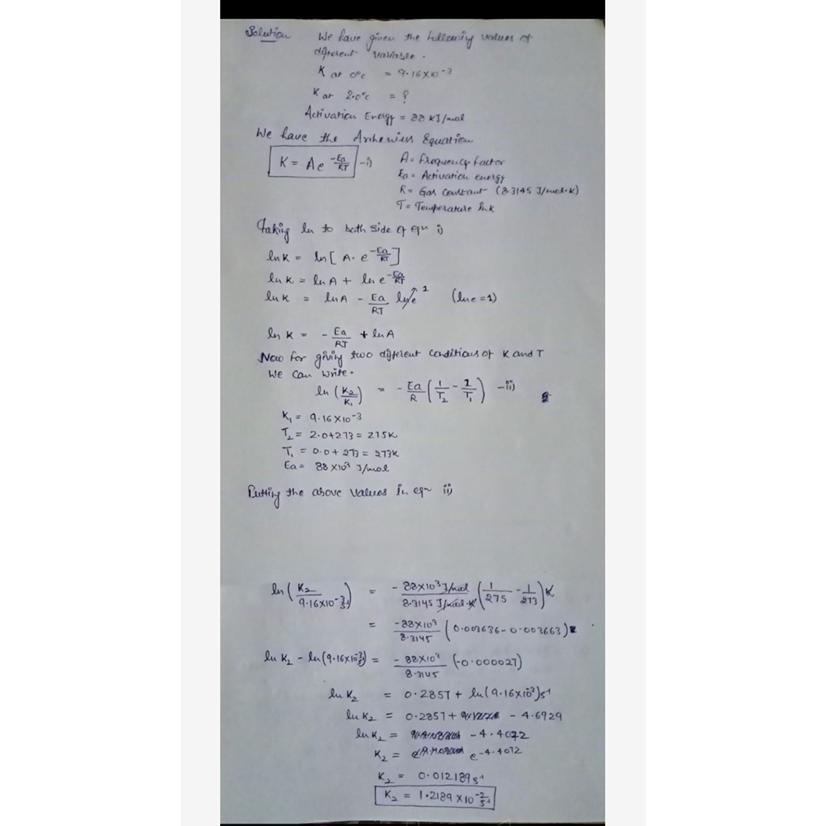 Solution We have given the following values of
different variable.
K at 0°c = 9.16×10⁻³
K at 2.0°c = ?
Activation Energy = 88 KJ/mol
We have the Arrhenius Equation
K = A e^(-Ea/RT) —i)
A = Frequency factor
Ea = Activation energy
R = Gas constant (8.3145 J/mol·K)
T = Temperature in K
Taking ln to both side of eqn i)
ln K = ln[ A· e^(-Ea/RT) ]
ln K = ln A + ln e^(-Ea/RT)
ln K = ln A - Ea/RT ln e 1 (ln e = 1)
ln K = - Ea/RT + ln A
Now for giving two different conditions of K and T
We can write.
ln (K₂/K₁) = - Ea/R (1/T₂ - 1/T₁) —ii)
K₁ = 9.16×10⁻³
T₂ = 2.0+273 = 275K
T₁ = 0.0 + 273 = 273K
Ea = 88×10³ J/mol
Putting the above values in eqn ii)
ln (K₂/9.16×10⁻³ s⁻¹) = -88×10³ J/mol / 8.3145 J/mol·K (1/275 - 1/273) K
= -88×10³/8.3145 (0.003636 - 0.003663)
ln K₂ - ln(9.16×10⁻³ s⁻¹) = -88×10³/8.3145 (-0.000027)
ln K₂ = 0.2857 + ln(9.16×10⁻³) s⁻¹
ln K₂ = 0.2857 + - 4.6929
ln K₂ = - 4.4072
K₂ = e^(-4.4072)
K₂ = 0.012189 s⁻¹
K₂ = 1.2189×10⁻² s⁻¹